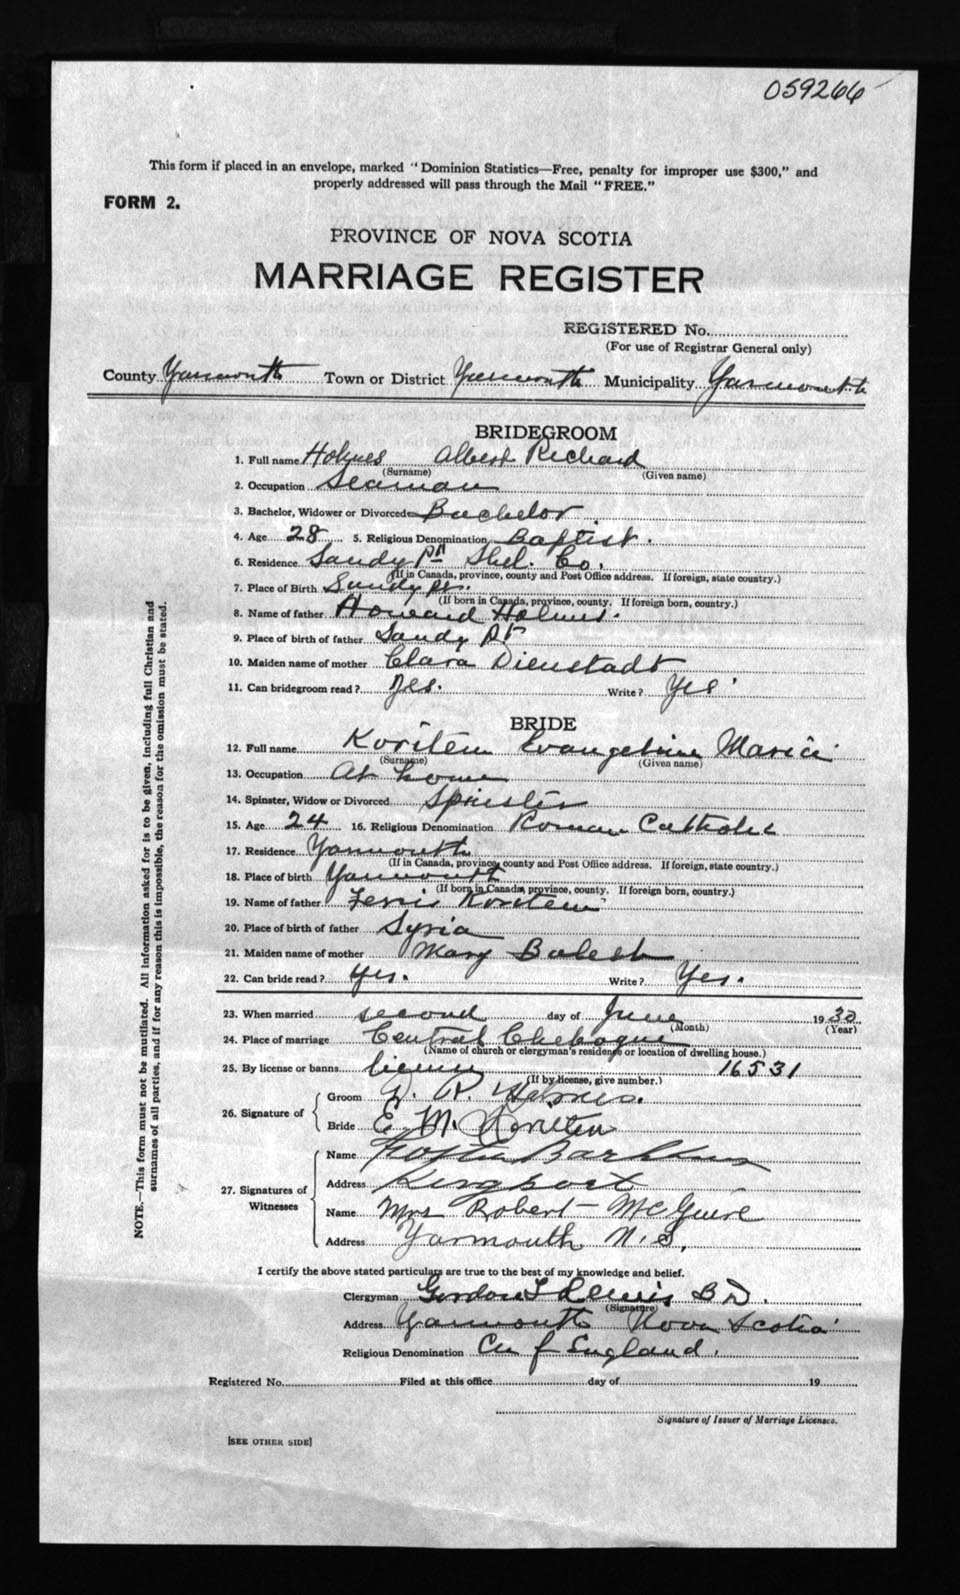 059266
This form if placed in an envelope, marked "Dominion Statistics—Free, penalty for improper use $300," and
properly addressed will pass through the Mail "FREE."
FORM 2.
PROVINCE OF NOVA SCOTIA
MARRIAGE REGISTER
REGISTERED No.
(For use of Registrar General only)
County Yarmouth Town or District Yarmouth Municipality Yarmouth
BRIDEGROOM
1. Full name Holmes Albert Richard
(Surname) (Given name)
2. Occupation Seaman
3. Bachelor, Widower or Divorced Bachelor
4. Age 28 5. Religious Denomination Baptist.
6. Residence Sandy Pt Shel. Co.
(If in Canada, province, county and Post Office address. If foreign, state country.)
7. Place of Birth Sandy Pt.
(If born in Canada, province, county. If foreign born, country.)
8. Name of father Howard Holmes.
9. Place of birth of father Sandy Pt
10. Maiden name of mother Clara Dienstadt
11. Can bridegroom read? Yes. Write? Yes
BRIDE
12. Full name Koritem Evangeline Marie
(Surname) (Given name)
13. Occupation At home
14. Spinster, Widow or Divorced Spinster
15. Age 24 16. Religious Denomination Roman Catholic
17. Residence Yarmouth
(If in Canada, province, county and Post Office address. If foreign, state country.)
18. Place of birth Yarmouth
(If born in Canada, province, county. If foreign born, country.)
19. Name of father Ferris Koritem
20. Place of birth of father Syria
21. Maiden name of mother Mary
22. Can bride read? Yes. Write? Yes.
23. When married second day of June 1930
(Month) (Year)
24. Place of marriage Central Chebogue
(Name of church or clergyman's residence or location of dwelling house.)
25. By license or banns license 16531
(If by license, give number.)
26. Signature of
Groom R. Holmes.
Bride E. M. Koritem
27. Signatures of Witnesses
Name
Address Kingsport
Name Mrs Robert McGuire
Address Yarmouth N.S.
I certify the above stated particulars are true to the best of my knowledge and belief.
Clergyman Gordon T Lewis B D.
(Signature)
Address Yarmouth Nova Scotia
Religious Denomination Ch of England.
Registered No. Filed at this office day of 19
Signature of Issuer of Marriage Licenses.
[SEE OTHER SIDE]
NOTE.—This form must not be mutilated. All information asked for is to be given, including full Christian and
surnames of all parties, and if for any reason this is impossible, the reason for the omission must be stated.